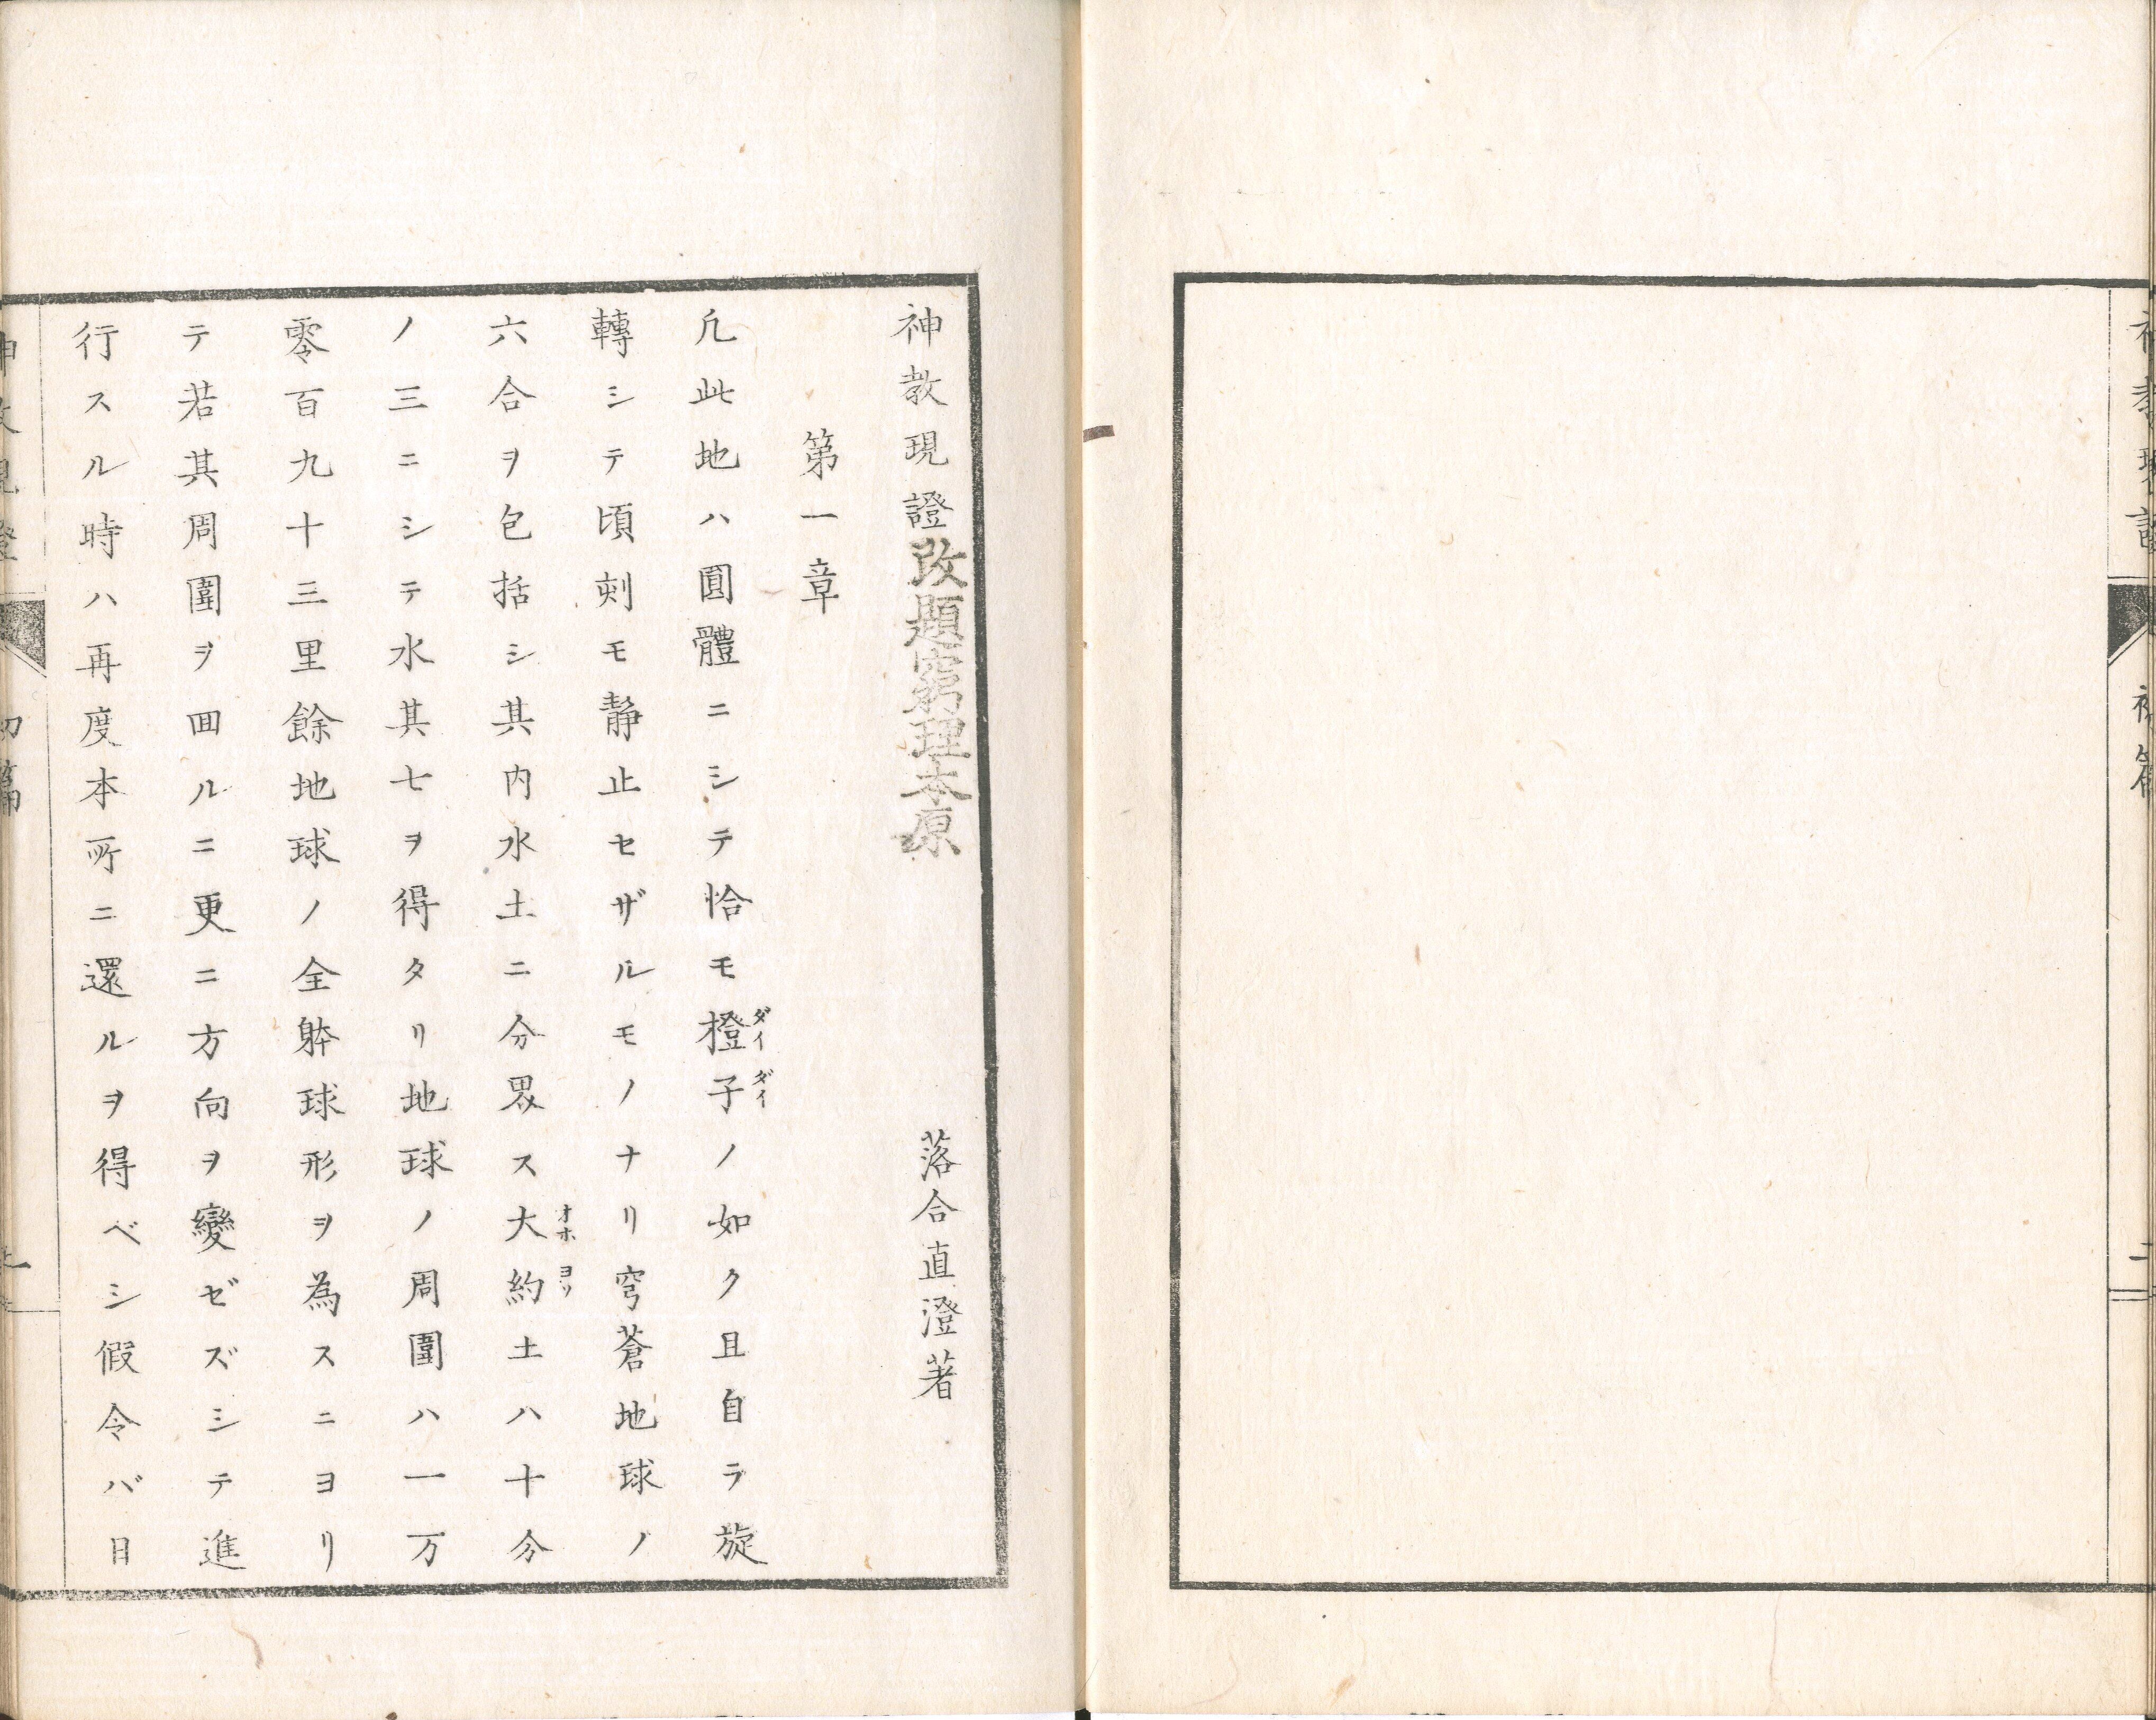 神教現證改題窮理本原　落合直澄著
第一章
凡此地ハ圓體ニシテ恰モ橙子ノ如ク且自ラ旋
ダイダイ
轉シテ頃刻モ静止セザルモノナリ穹蒼地球ノ
六合ヲ包括シ其内水土ニ分界ス大約土ハ十分
オホヨソ
ノ三ニシテ水其七ヲ得タリ地球ノ周圍ハ一万
零百九十三里餘地球ノ全躰球形ヲ為スニヨリ
テ若其周圍ヲ囬ルニ更ニ方向ヲ變ゼズシテ進
行スル時ハ再度本所ニ還ルヲ得ベシ假令バ日